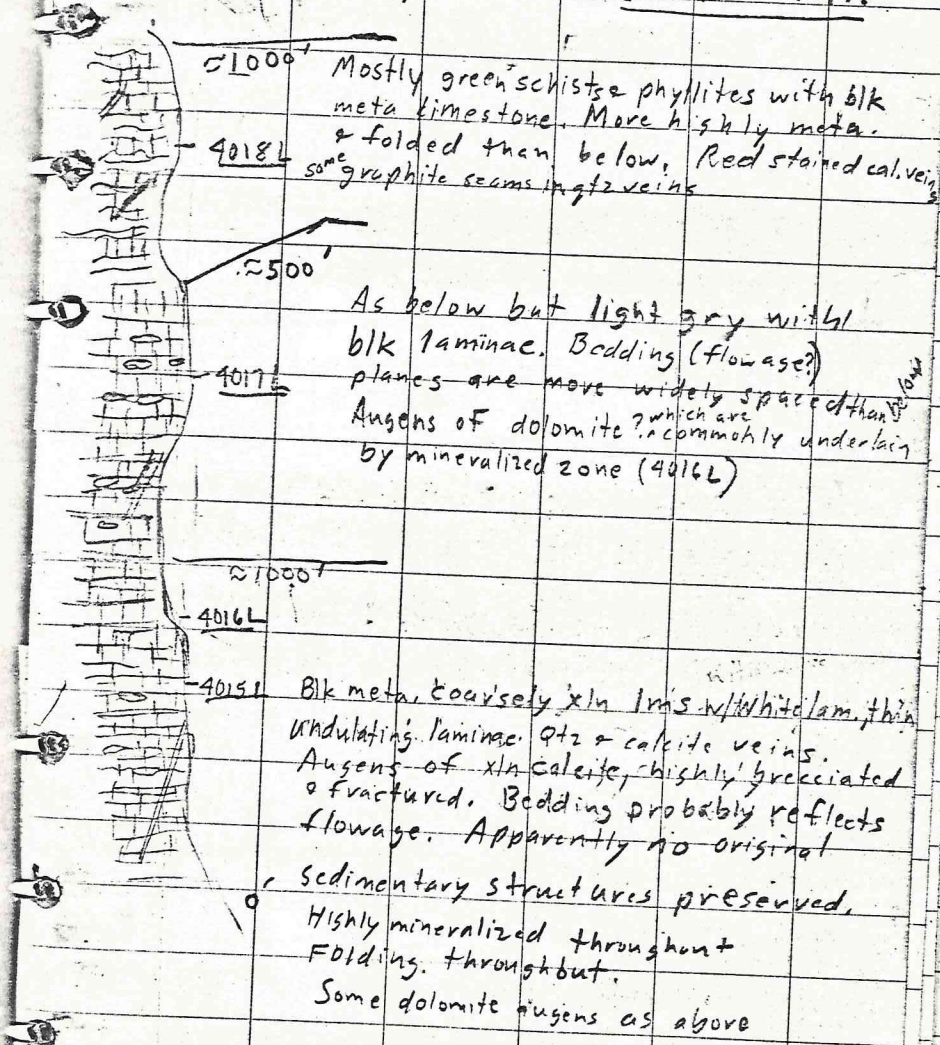 ≈1000'
Mostly green schists & phyllites with blk
meta limestone. More highly meta.
& folded than below. Red stained cal. veins
some graphite seams in qtz veins
4018L
≈500'
As below but light gry with
blk laminae. Bedding (flowage?)
planes are more widely spaced than below
Augens of dolomite? which are commonly underlain
by mineralized zone (4016L)
4017L
≈1000'
4016L
4015L
Blk meta. coarsely xln lms w/White lam., thin
undulating laminae. Qtz & calcite veins.
Augens of xln calcite, highly brecciated
& fractured. Bedding probably reflects
flowage. Apparently no original
sedimentary structures preserved.
Highly mineralized throughout
Folding throughout.
Some dolomite augens as above
0